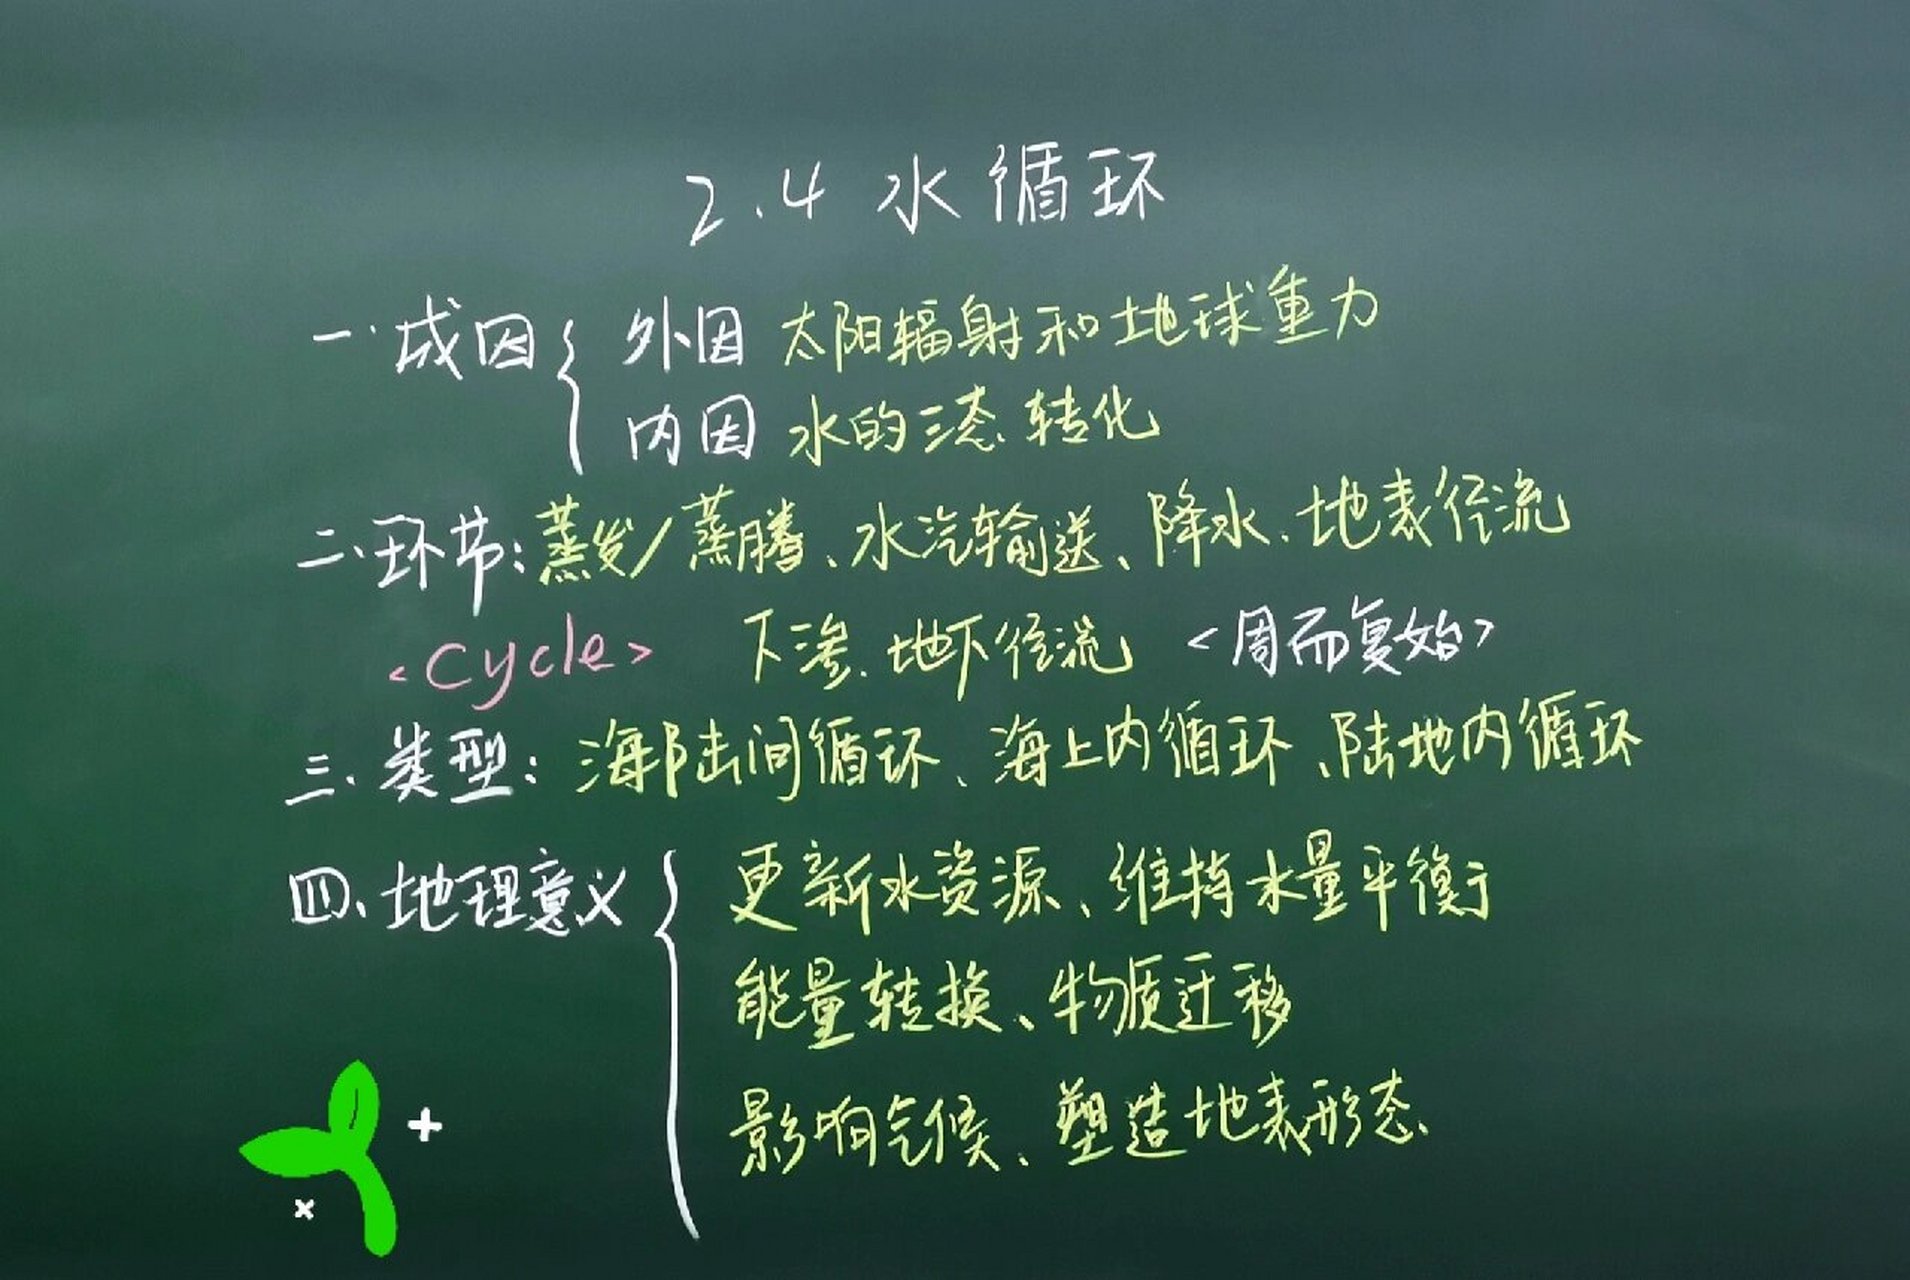 2.4 水循环
一.成因{ 外因 太阳辐射和地球重力
内因 水的三态转化
二、环节：蒸发/蒸腾、水汽输送、降水、地表径流
<Cycle> 下渗、地下径流 <周而复始>
三、类型：海陆间循环、海上内循环、陆地内循环
四、地理意义{ 更新水资源、维持水量平衡
能量转换、物质迁移
影响气候、塑造地表形态、